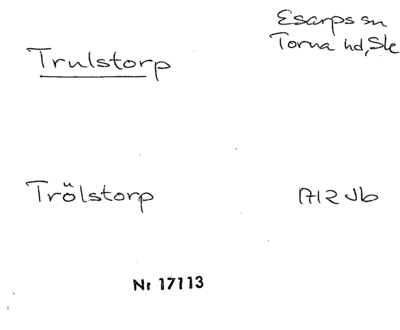 Esarps sn
Torna hd, Sk
Trulstorp
Trölstorp 1712 Jb
Nr 17113